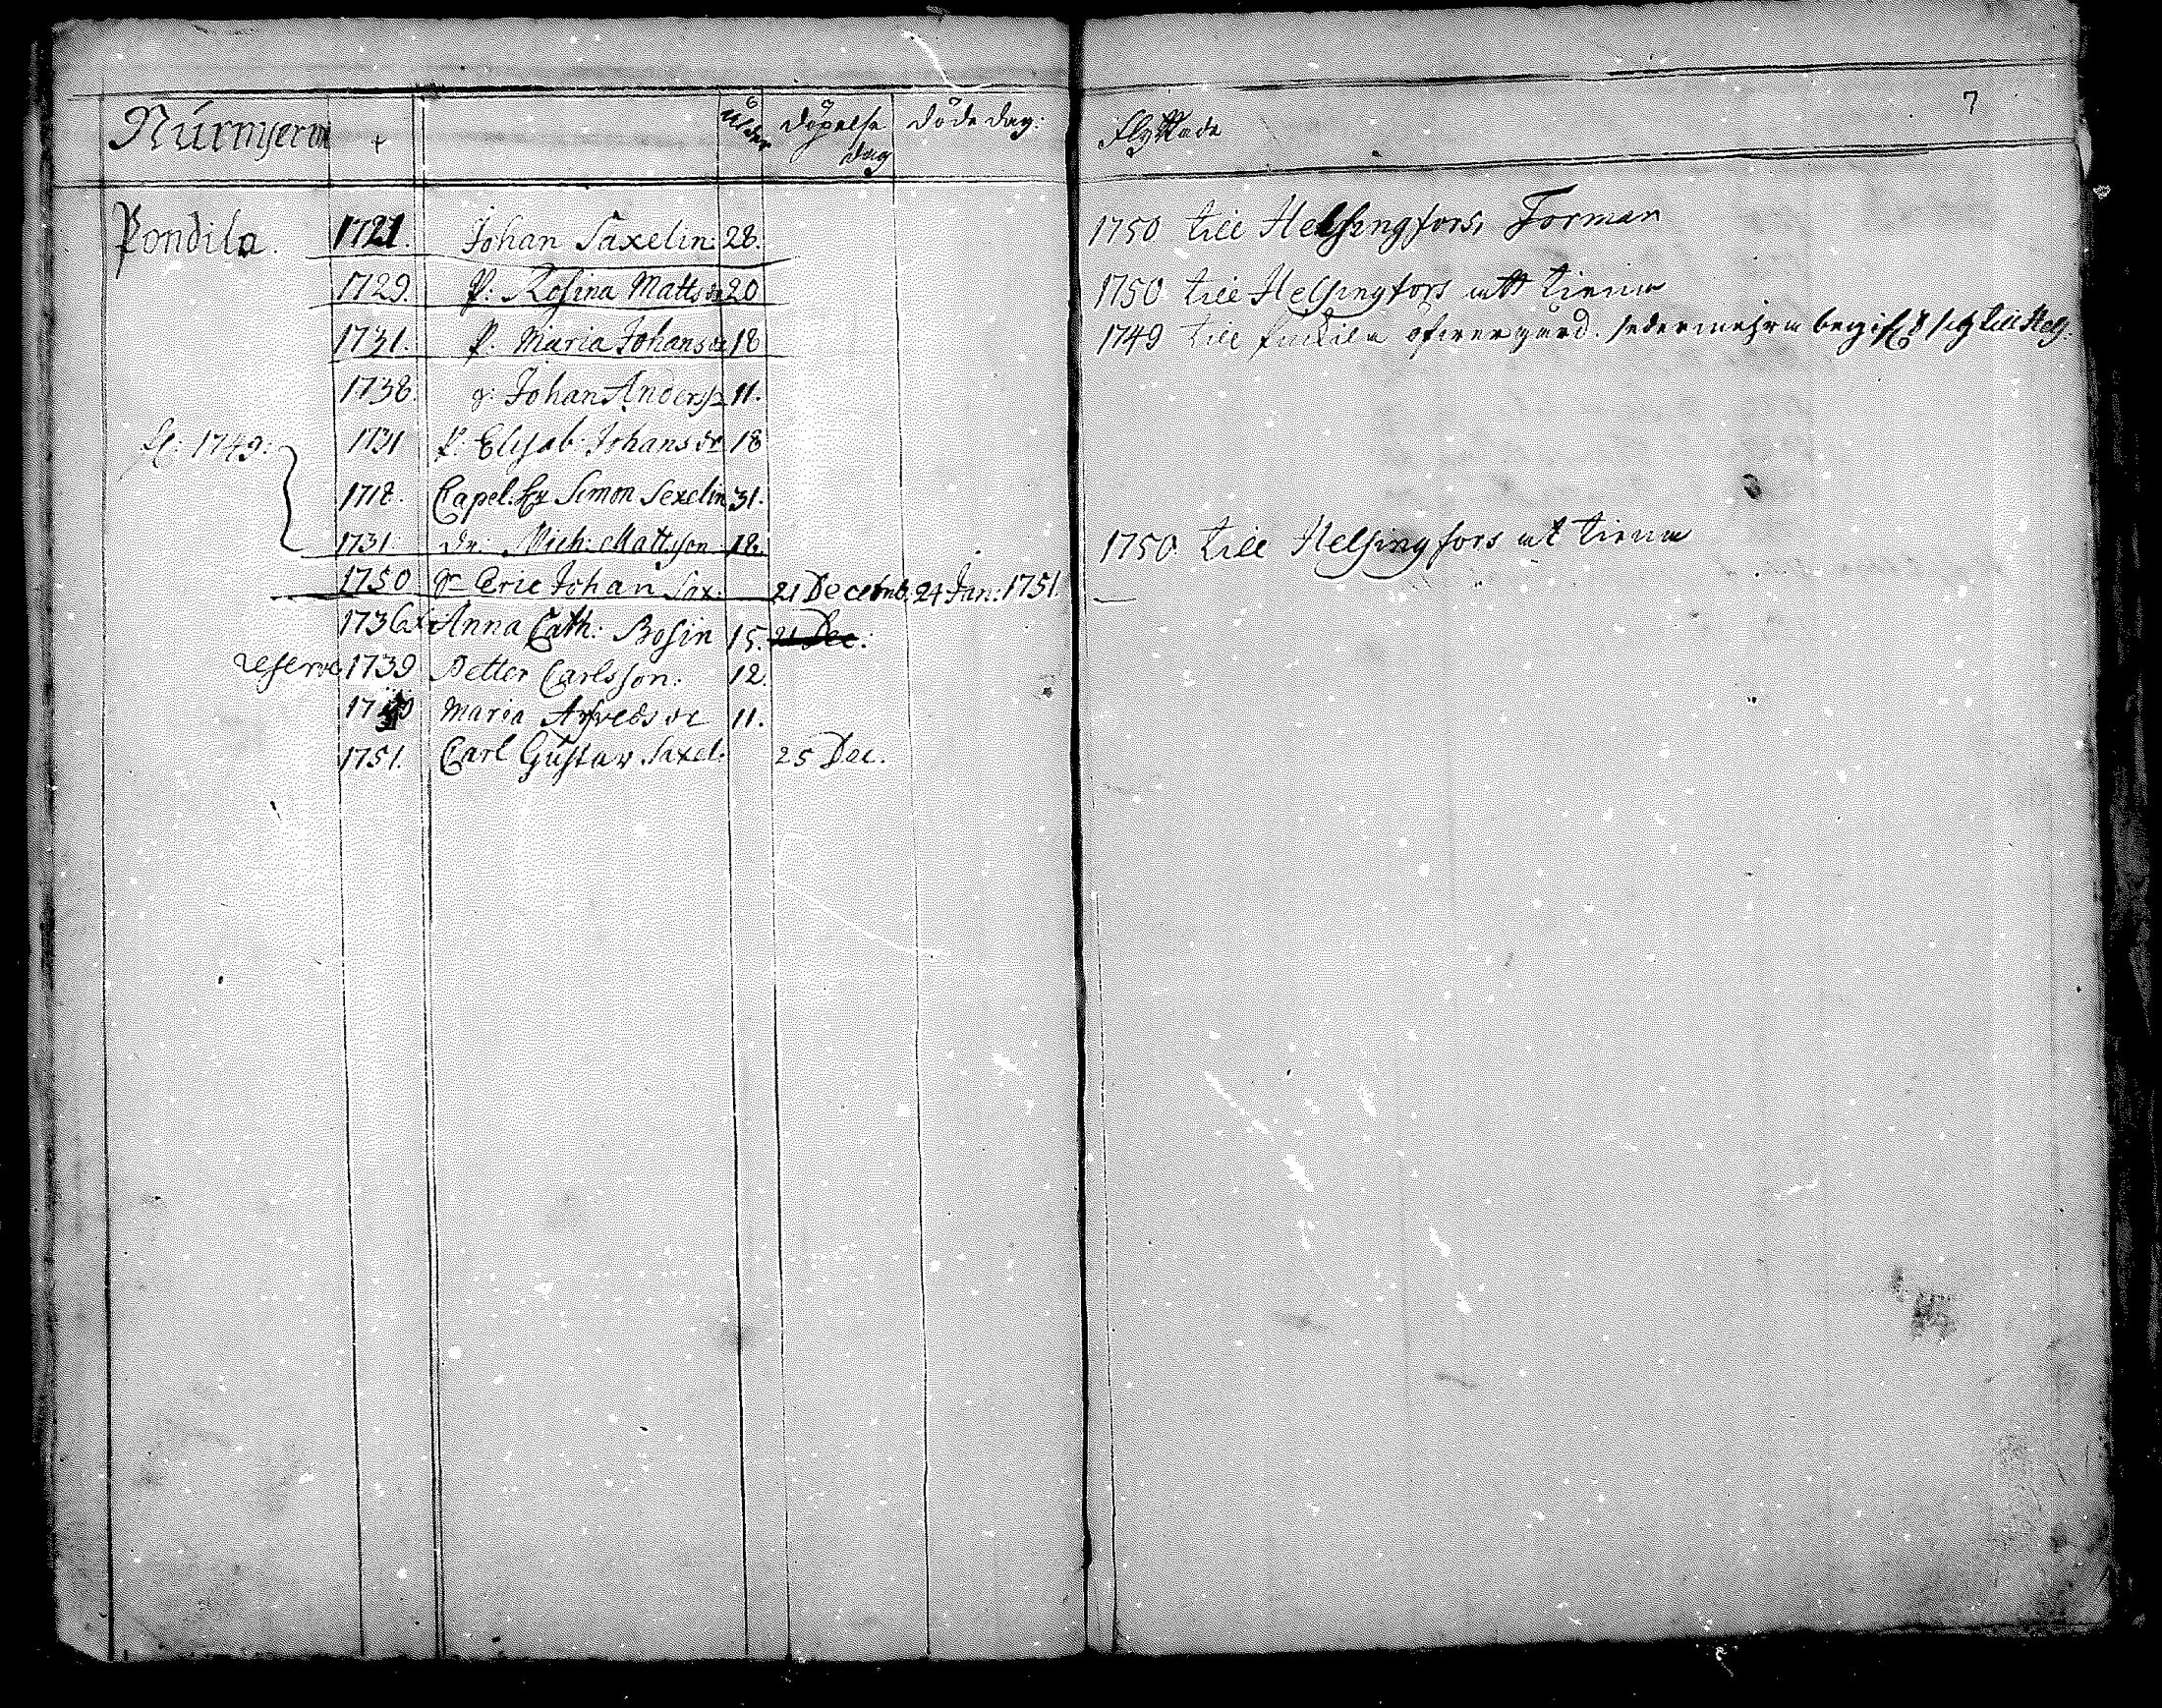 Nurmjerwi + Ålder döpelse dag döde dag: flyttade 7
Pondila. 1721. Johan Saxelin. 28. 1750 till Helsingfors, Forman
1729. P: Rosina Matts dr 20 1750 till Helsingfors att tiena
1731. P. Maria Johans dr 18 1749 till öfwergård. sedermehra begifft sig till Helsg:
1738. g: Johan Anderss 11.
fl: 1749: 1731 P. Elisab. Johans dr 18
1718. Capel. Simon Sexelin 31.
1731. dr: Mich: Mattsson 18. 1750 till Helsingfors at tiena
1750 gr Eric Johan Sax: 21 Decemb. 24 Jan: 1751.
1736 Anna Cath: Bosin 15. 21 Dec:
reserve 1739 Petter Carlsson: 12.
Maria Arfveds dr 11.
1751. Carl Gustaw Saxel: 25 Dec.